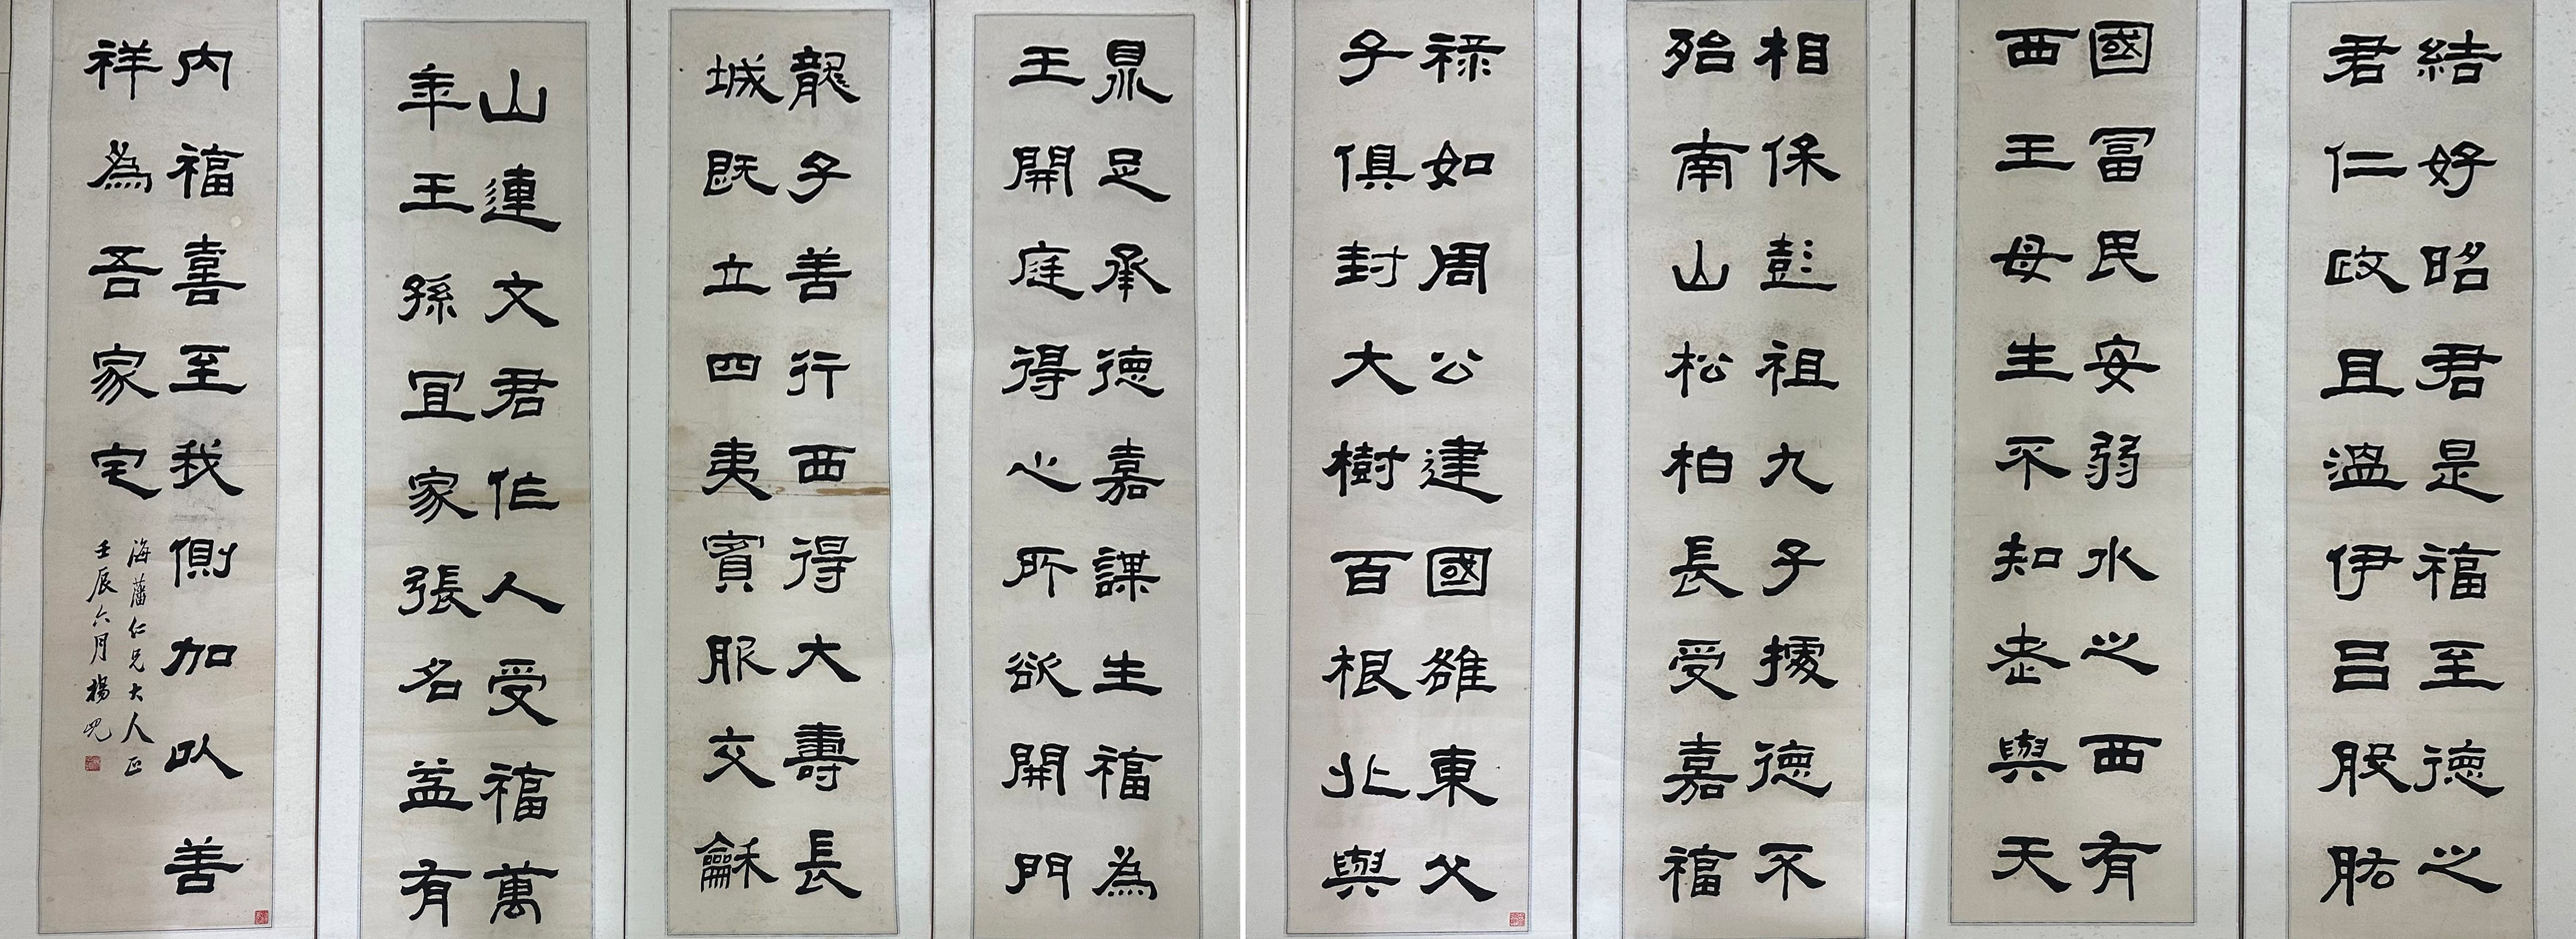 結好昭君是福至德之
君仁政且溫伊呂股肱
國富民安弱水之西有
西王母生不知老與天
相保彭祖九子據德不
殆南山松柏長受嘉福
祿如周公建國雒東父
子俱封大樹百根北與
鼎足承德嘉謀生福為
王開庭得心所欲開門
龍子善行西得大壽長
城既立四夷賓服交龢
山連文君作人受福萬
年王孫宜家張名益有
內福喜至我側加以善
祥為吾家宅
海藩仁兄大人正
壬辰六月楊峴